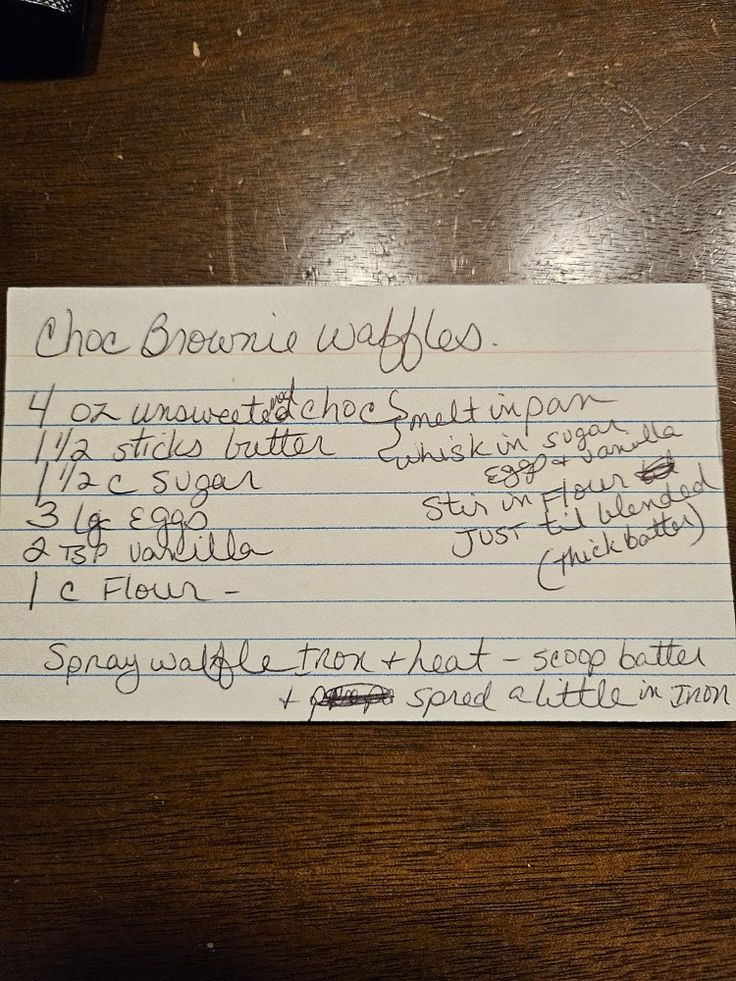 Choc Brownie Waffles.
4 oz unsweetened choc
1 1/2 sticks butter
1 1/2 c sugar
3 lg Eggs
2 Tsp vanilla
1 c Flour -
melt in pan
whisk in sugar
eggs + vanilla
Stir in Flour
JUST til blended
(thick batter)
Spray waffle Iron + heat - scoop batter
+ spred a little in Iron